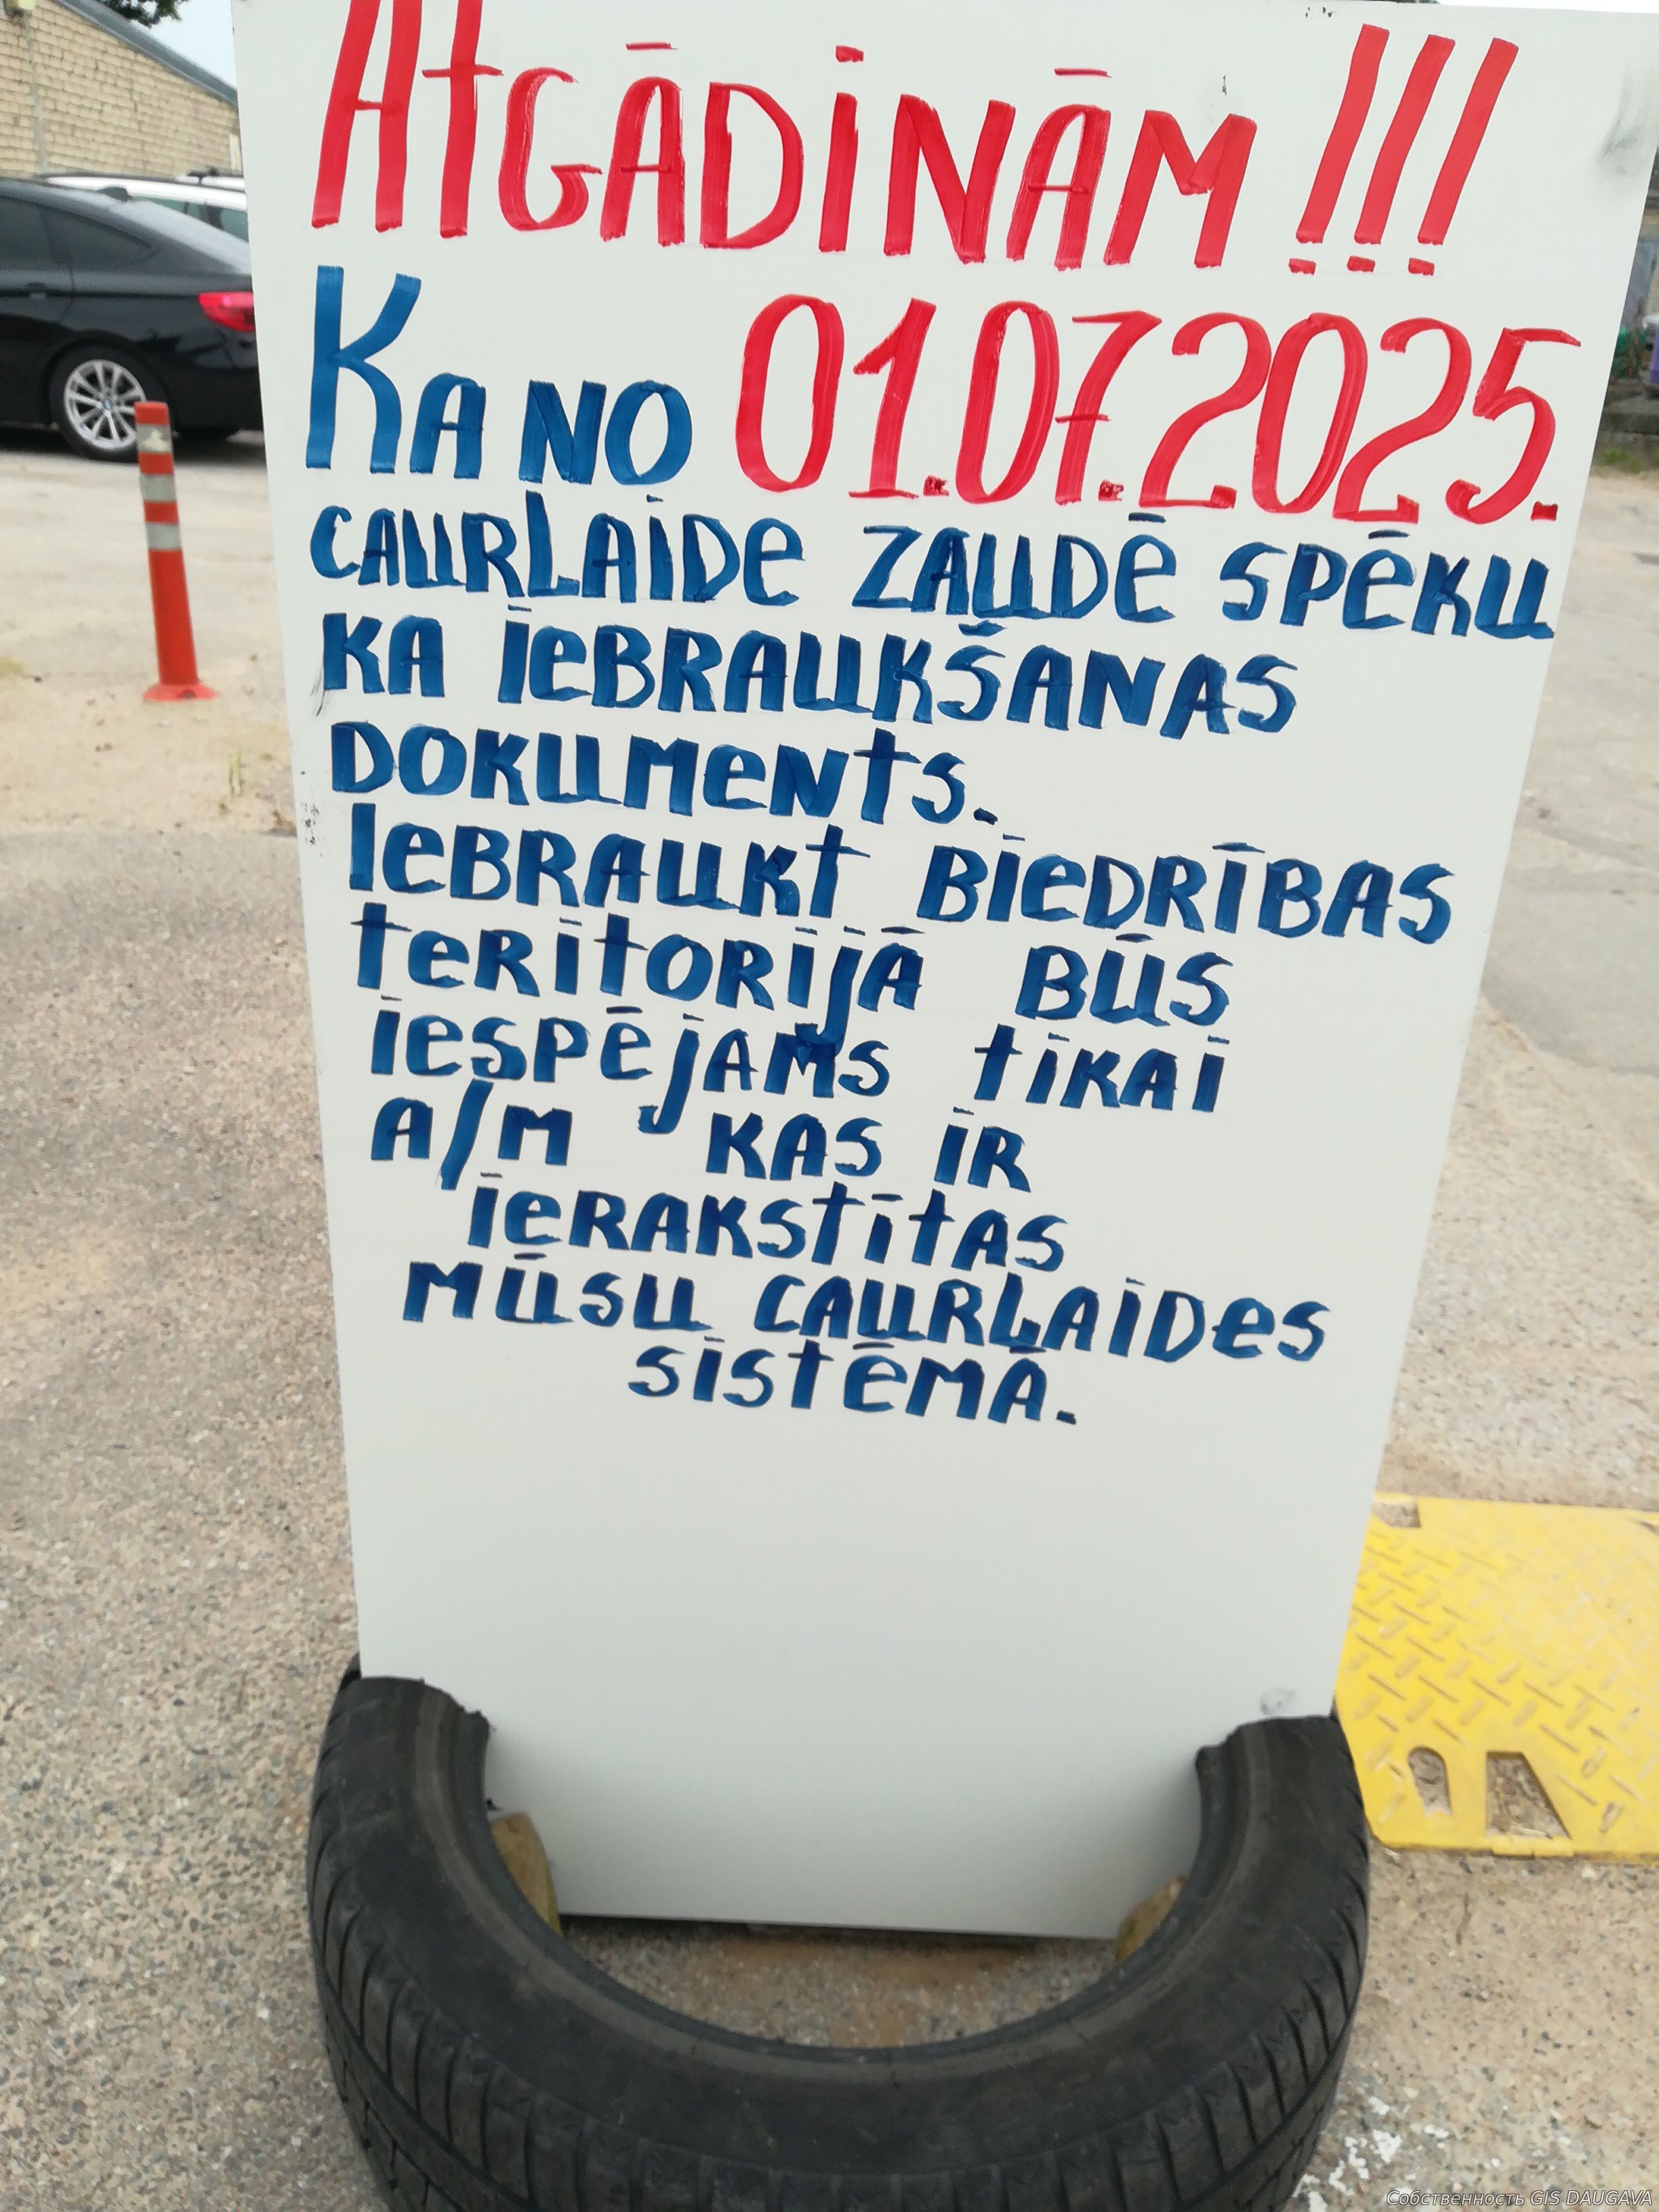 ATGĀDINĀM!!!
KA NO 01.07.2025.
CAURĻAIDE ZAUDĒ SPĒKU
KA IEBRAUKŠANAS
DOKUMENTS.
IEBRAUKT BIEDRĪBAS
TERITORIJĀ BŪS
IESPĒJAMS TIKAI
A/M KAS IR
IERAKSTĪTAS
MŪSU CAURĻAIDES
SISTĒMĀ.
Собственность GIS DAUGAVA